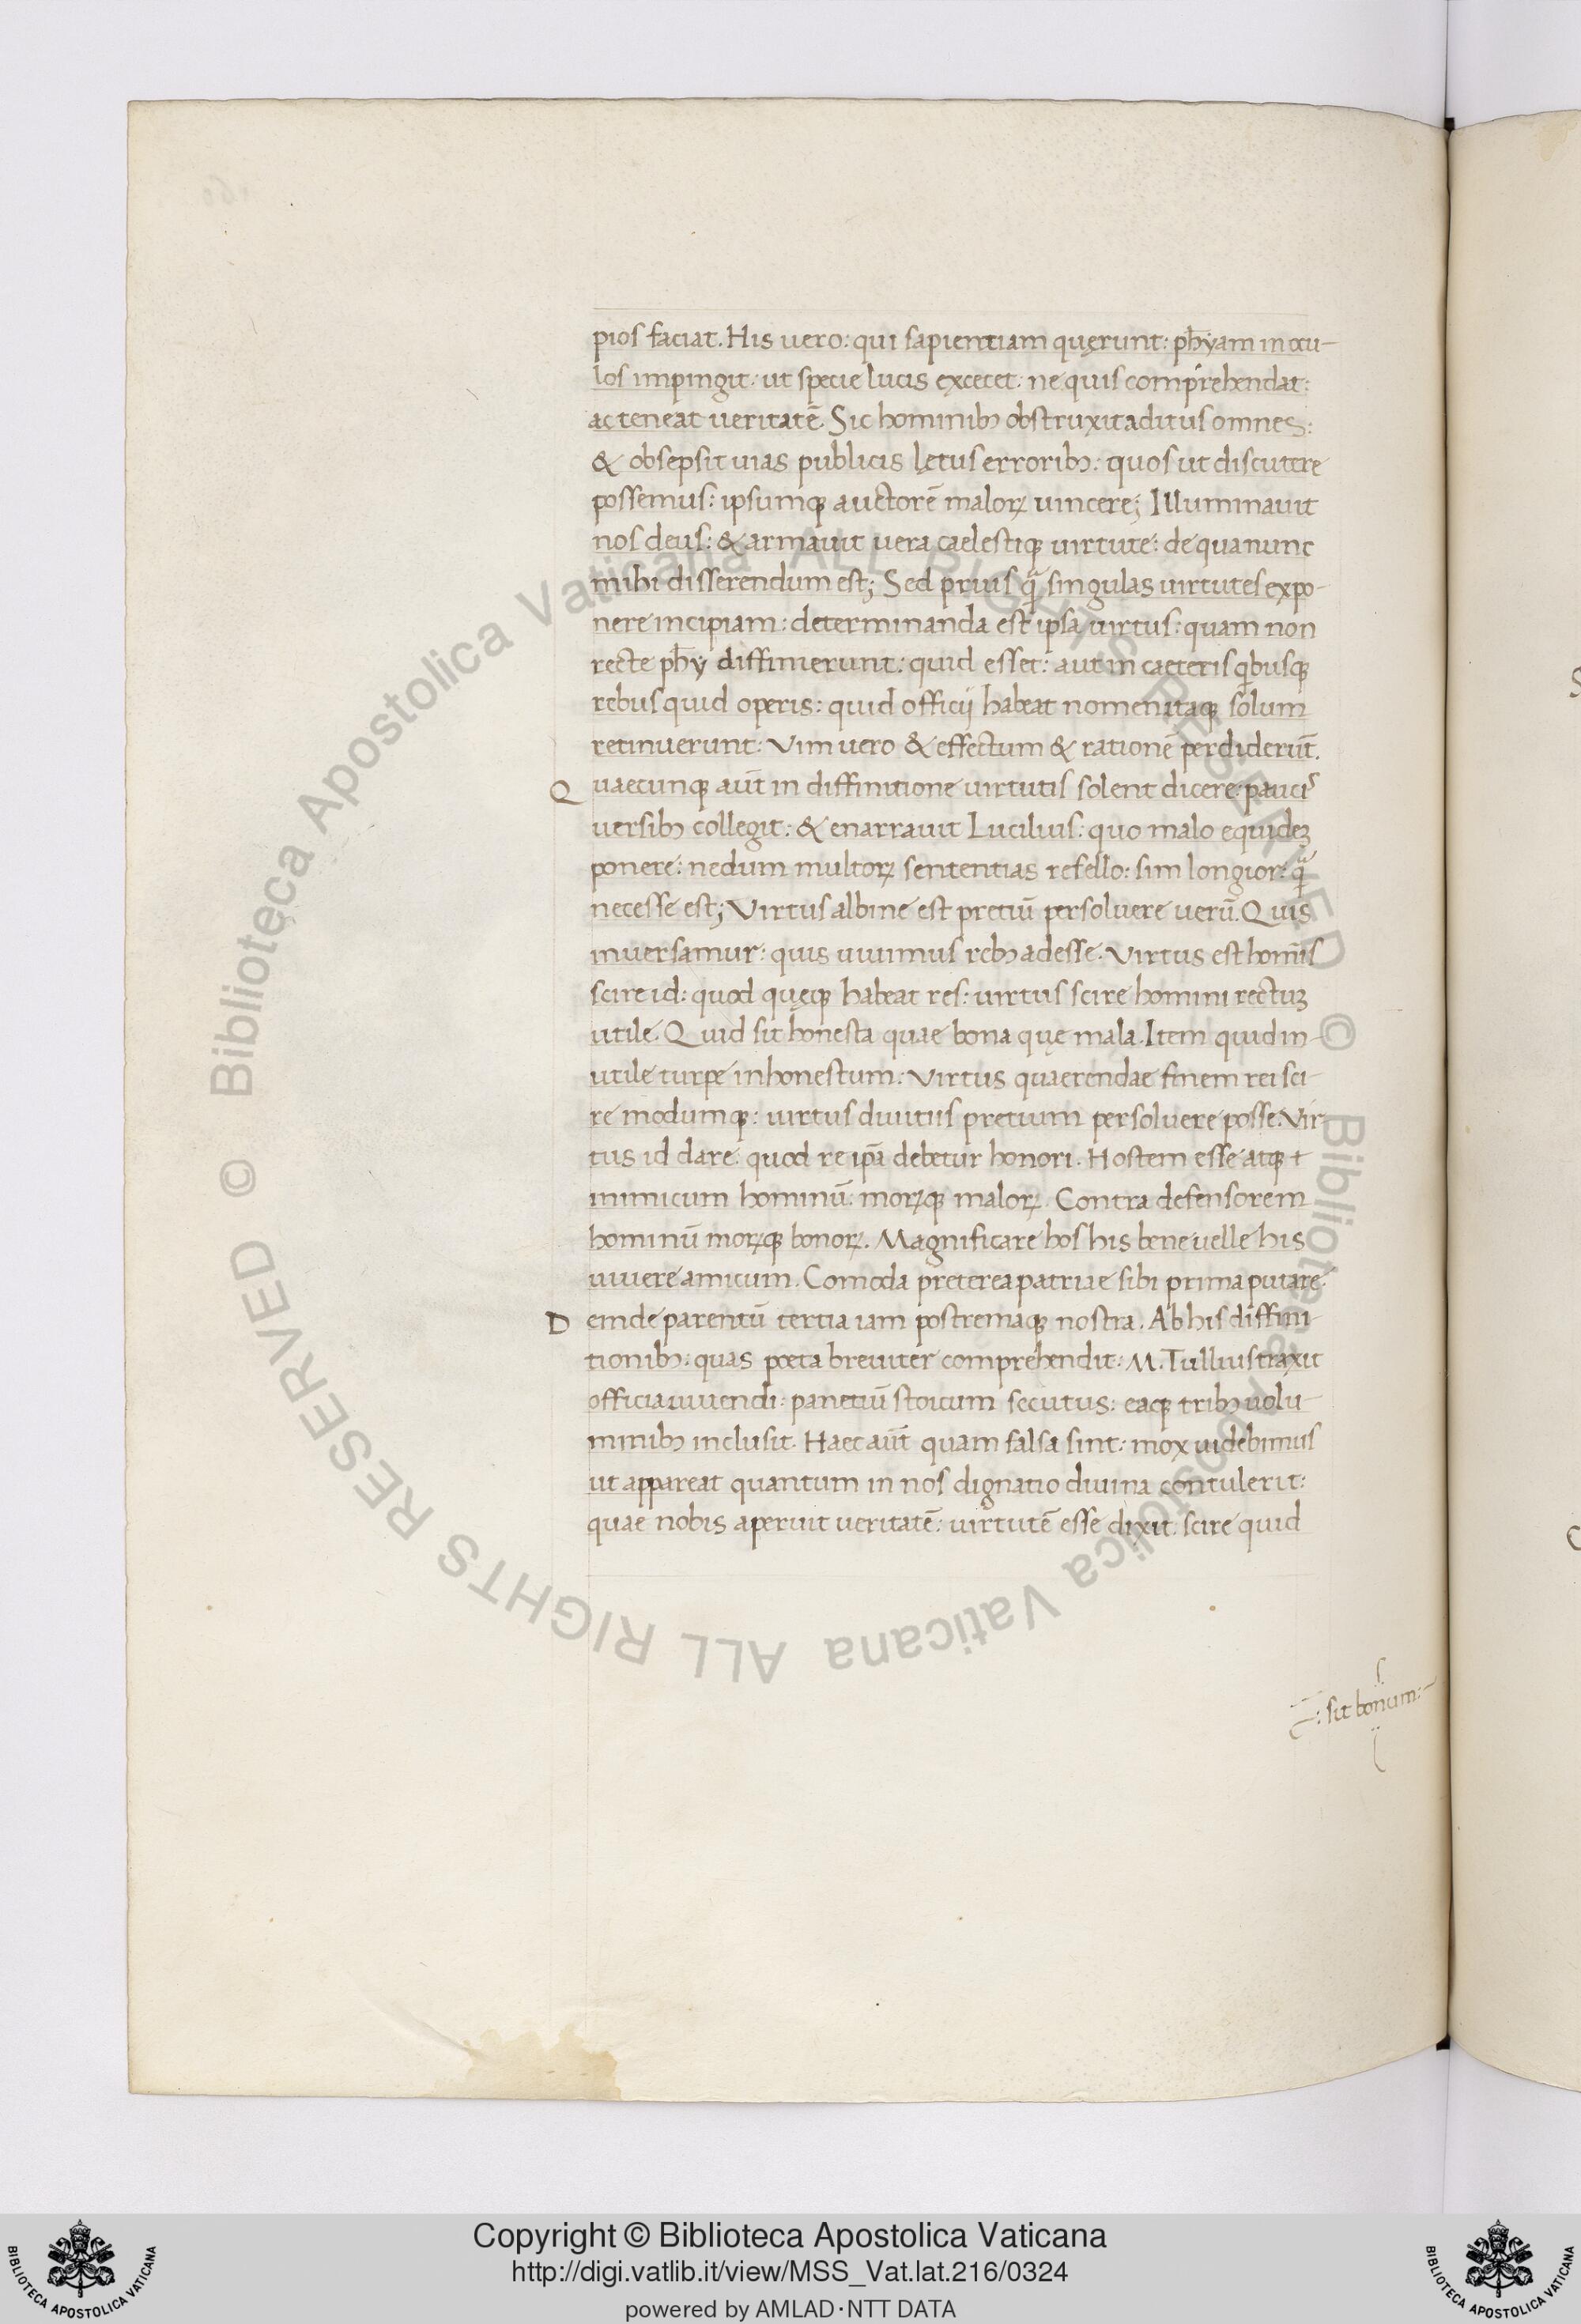 pios faciat. His vero: qui sapientiam quęrunt: ph̄yam in ocu-
los impingit: ut specie lucis excecet: ne quis comprehendat:
ac teneat ueritatē. Sic hominib; obstruxit aditus omnes:
& obsepsit uias publicis lętus errorib;: quos ut discutere
possemus: ipsumq; auctorē maloꝝ uincere; Illuminauit
nos deus: & armauit uera caelestiq; uirtute: de qua nunc
mihi disserendum est; Sed prius qᷓ singulas uirtutes expo-
nere incipiam: determinanda est ipsa uirtus: quam non
recte ph̄y diffinierunt: quid esset: aut in caeteris qͥbusq;
rebus quid operis: quid officij habeat nomen itaq; solum
retinuerunt: Vim uero & effectum & rationē perdiderūt.
Quaecunq; aūt in diffinitione uirtutis solent dicere: paucis
uersib; collegit: & enarrauit Lucilius: quo malo equideꝫ
ponere: nedum multoꝝ sententias refello: sim longior: qᷓ
necesse est; Virtus albine est pretiū persoluere uerū. Quis
inuersamur: quis uiuimus reb; adesse. Virtus est hominis
scire id: quod quęq; habeat res: uirtus scire homini rectuꝫ
utile. Quid sit honesta quae bona quę mala. Item quid in-
utile turpe inhonestum: Virtus quaerendae finem rei sci-
re modumq;: uirtus diuitiis pretium persoluere posse. Vir
tus id dare. quod re ip̄a debetur honori. Hostem esse atq;
inimicum hominū: moꝝq; maloꝝ. Contra defensorem
hominū moꝝq; bonoꝝ. Magnificare hos his bene uelle his
uiuere amicum. Comoda preterea patriae sibi prima putare.
Deinde parentū tertia iam postremaq; nostra. Ab his diffini-
tionib;: quas poeta breuiter comprehendit: M. Tullius traxit
officia uiuendi: panetiū stoicum secutus: eaq; trib; uolu-
minib; inclusit. Haec aūt quam falsa sint: mox uidebimus
ut appareat quantum in nos dignatio diuina contulerit:
quae nobis aperuit ueritatē: uirtutē esse dixit: scire quid
: sit bonum:-
© Biblioteca Apostolica Vaticana ALL RIGHTS RESERVED © Biblioteca Apostolica Vaticana ALL RIGHTS RESERVED
Copyright © Biblioteca Apostolica Vaticana
http://digi.vatlib.it/view/MSS_Vat.lat.216/0324
powered by AMLAD·NTT DATA
BIBLIOTECA APOSTOLICA VATICANA
BIBLIOTECA APOSTOLICA VATICANA